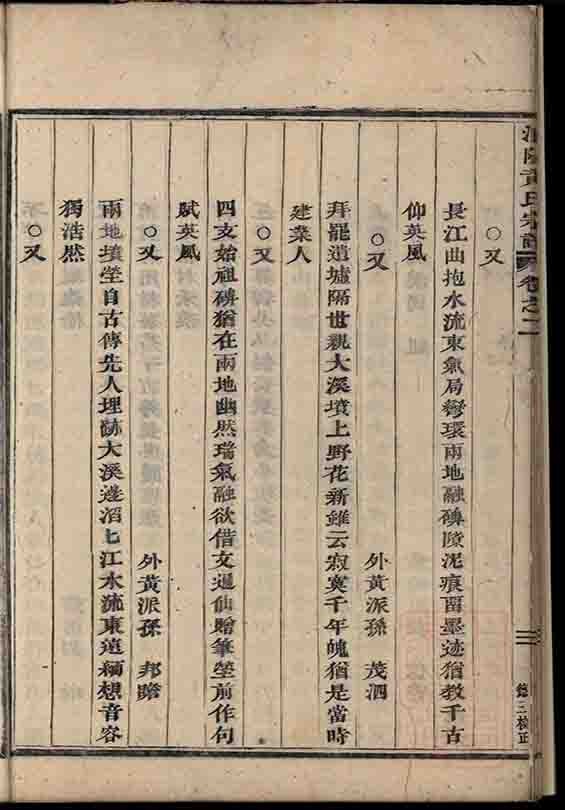 黃氏宗譜 卷之二
三
三校正
○又
長江曲抱水流東氣局彎環兩地融碑隙泥痕留墨迹猶教千古
仰英風
○又 外黃派孫 茂泗
拜罷遺墟隔世親大溪墳上野花新雖云寂寞千年魄猶是當時
建業人
○又
四支始祖碑猶在兩地幽然瑞氣融欲借文通仙贈筆塋前作句
賦英風
○又 外黃派孫 邦瞻
兩地墳塋自古傳先人埋跡大溪邊滔七江水流東遠緬想音容
獨浩然
○又